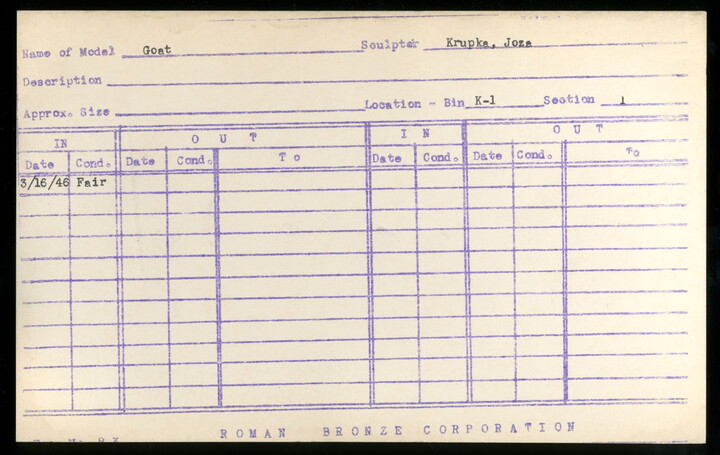 Name of Model Goat Sculptor Krupka, Joza
Description
Approx. Size Location - Bin K-1 Section 1
IN OUT IN OUT
Date Cond. Date Cond. To Date Cond. Date Cond. To
3/16/46 Fair
ROMAN BRONZE CORPORATION